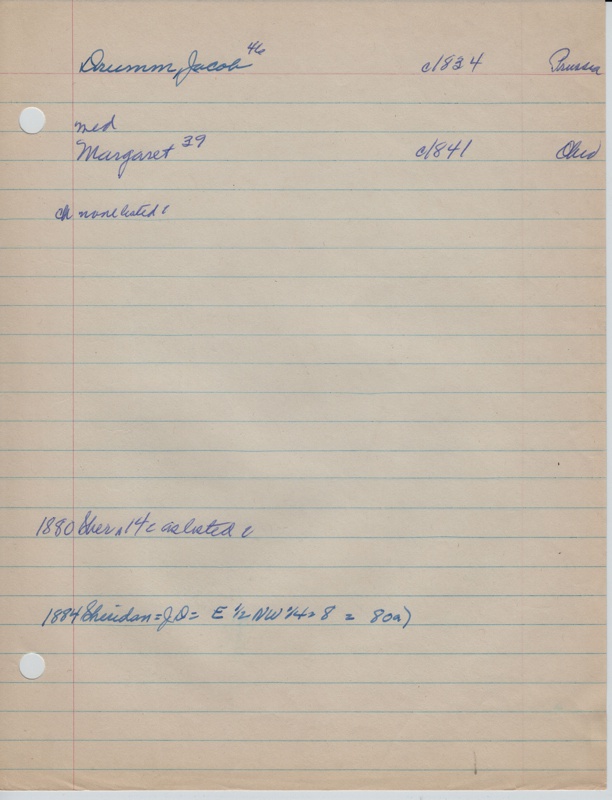 Drumm, Jacob 46 c1834 Prussia
med
Margaret 39 c1841 Ohio
ch none listed c
1880 Sher 14c as listed c
1884 Sheridan = JD = E 1/2 NW 1/4 = 8 = 80a)